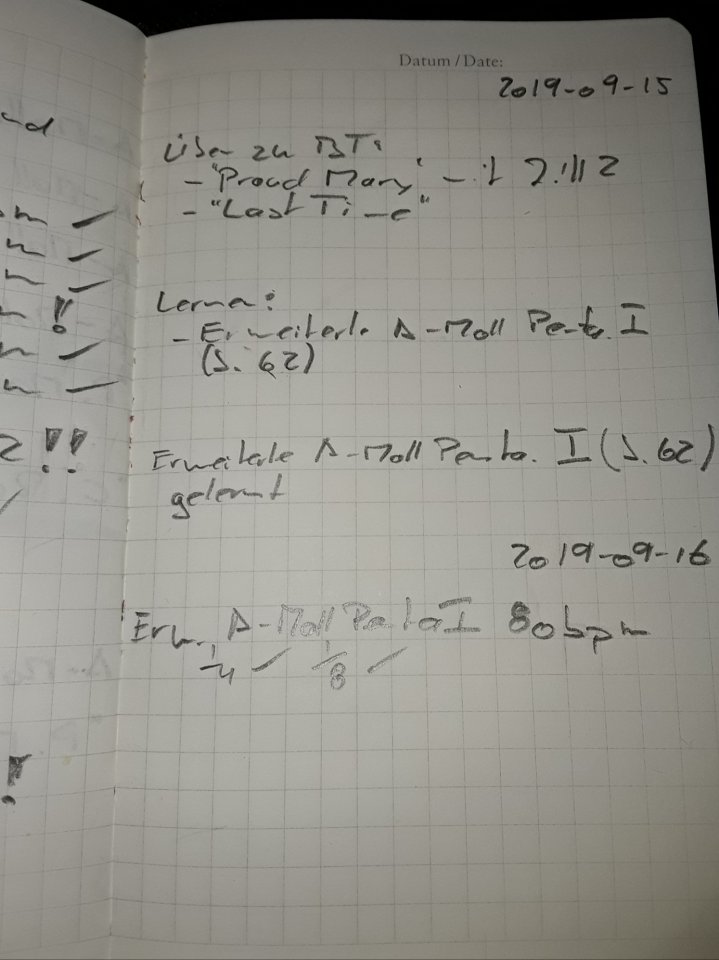 Datum / Date:
2019-09-15
Üben zu BT:
- "Proud Mary" - it
- "Last Time"
Lernen:
- Erweiterte A-Moll Penta. I
(S. 62)
Erweiterte A-Moll Penta. I (S. 62)
gelernt
2019-09-16
Erw. A-Moll Penta I 80bpm
1/4 ✓ 1/8 ✓